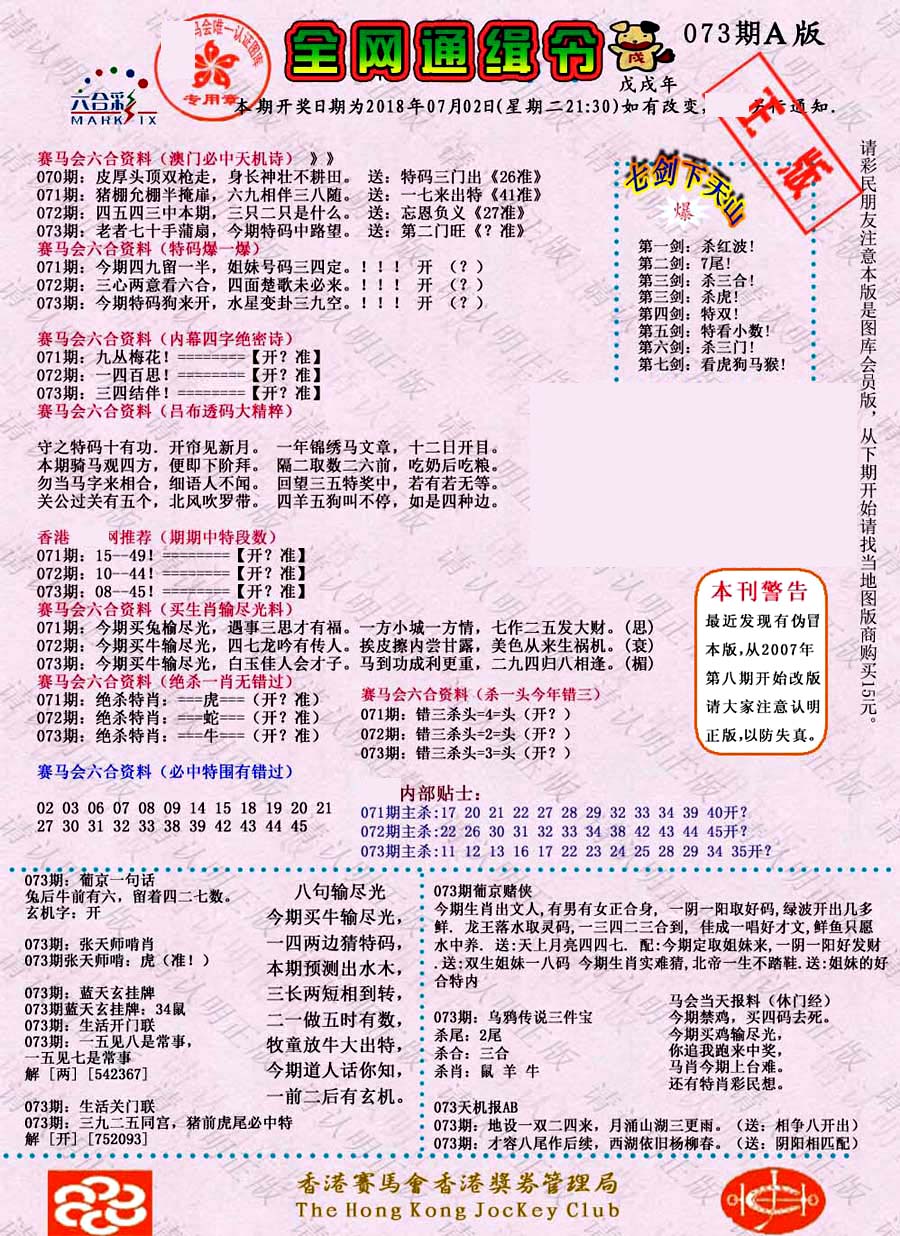 全网通缉令
073期A版
戊
戊戌年
马会唯一认证图库
专用章
六合彩
MARK SIX
本期开奖日期为2018年07月02日(星期二21:30)如有改变,
通知.
正版
赛马会六合资料（澳门必中天机诗） 》》
070期：皮厚头顶双枪走，身长神壮不耕田。 送：特码三门出《26准》
071期：猪棚允棚半掩扉，六九相伴三八随。 送：一七来出特《41准》
072期：四五四三中本期，三只二只是什么。 送：忘恩负义《27准》
073期：老者七十手蒲扇，今期特码中路望。 送：第二门旺《？准》
赛马会六合资料（特码爆一爆）
071期：今期四九留一半，姐妹号码三四定。！！！ 开 （？）
072期：三心两意看六合，四面楚歌未必来。！！！ 开 （？）
073期：今期特码狗来开，水星变卦三九空。！！！ 开 （？）
赛马会六合资料（内幕四字绝密诗）
071期：九丛梅花！========【开？准】
072期：一四百思！========【开？准】
073期：三四结伴！========【开？准】
赛马会六合资料（吕布透码大精粹）
守之特码十有功．开帘见新月。 一年锦绣马文章，十二日开目。
本期骑马观四方，便即下阶拜。 隔二取数二六前，吃奶后吃粮。
勿当马字来相合，细语人不闻。 回望三五特奖中，若有若无等。
关公过关有五个，北风吹罗带。 四羊五狗叫不停，如是四种边。
七剑下天山
爆
第一剑：杀红波！
第二剑：7尾！
第三剑：杀三合！
第三剑：杀虎！
第四剑：特双！
第五剑：特看小数！
第六剑：杀三门！
第七剑：看虎狗马猴！
请彩民朋友注意本版是图库会员版，从下期开始请找当地图版商购买15元。
香港 网推荐（期期中特段数）
071期：15--49！========【开？准】
072期：10--44！========【开？准】
073期：08--45！========【开？准】
赛马会六合资料（买生肖输尽光料）
071期：今期买兔输尽光，遇事三思才有福。一方小城一方情，七作二五发大财。(思)
072期：今期买牛输尽光，四七龙吟有传人。挨皮擦内尝甘露，美色从来生祸机。(衰)
073期：今期买牛输尽光，白玉佳人会才子。马到功成利更重，二九四归八相逢。(楣)
赛马会六合资料（绝杀一肖无错过）
071期：绝杀特肖：===虎===（开？准）
072期：绝杀特肖：===蛇===（开？准）
073期：绝杀特肖：===牛===（开？准）
赛马会六合资料（杀一头今年错三）
071期：错三杀头=4=头（开？）
072期：错三杀头=2=头（开？）
073期：错三杀头=3=头（开？）
本刊警告
最近发现有伪冒
本版,从2007年
第八期开始改版
请大家注意认明
正版,以防失真。
赛马会六合资料（必中特围有错过）
02 03 06 07 08 09 14 15 18 19 20 21
27 30 31 32 33 38 39 42 43 44 45
内部贴士：
071期主杀:17 20 21 22 27 28 29 32 33 34 39 40开?
072期主杀:22 26 30 31 32 33 34 38 42 43 44 45开?
073期主杀:11 12 13 16 17 22 23 24 25 28 29 34 35开?
073期：葡京一句话
兔后牛前有六，留着四二七数。
玄机字：开
073期：张天师啃肖
073期张天师啃：虎（准！）
073期：蓝天玄挂牌
073期蓝天玄挂牌：34鼠
073期：生活开门联
073期：一五见八是常事，
一五见七是常事
解 [两] [542367]
073期：生活关门联
073期：三九二五同宫，猪前虎尾必中特
解 [开] [752093]
八句输尽光
今期买牛输尽光，
一四两边猜特码，
本期预测出水木，
三长两短相到转，
二一做五时有数，
牧童放牛大出特，
今期道人话你知，
一前二后有玄机。
073期葡京赌侠
今期生肖出文人,有男有女正合身, 一阴一阳取好码,绿波开出几多
鲜. 龙王落水取灵码,一三四二三合到, 佳成一唱好才文,鲜鱼只愿
水中养. 送:天上月亮四四七. 配:今期定取姐妹来,一阴一阳好发财
.送:双生姐妹一八码 今期生肖实难猜,北帝一生不踏鞋.送:姐妹的好
合特内
073期：乌鸦传说三件宝
杀尾：2尾
杀合：三合
杀肖：鼠 羊 牛
马会当天报料（休门经）
今期禁鸡，买四码去死。
今期买鸡输尽光，
你追我跑来中奖，
马肖今期上台难。
还有特肖彩民想。
073天机报AB
073期：地设一双二四来，月涌山湖三更雨。（送：相争八开出）
073期：才容八尾作后续，西湖依旧杨柳春。（送：阴阳相匹配）
香港賽馬會香港獎券管理局
The Hong Kong JocKey Club